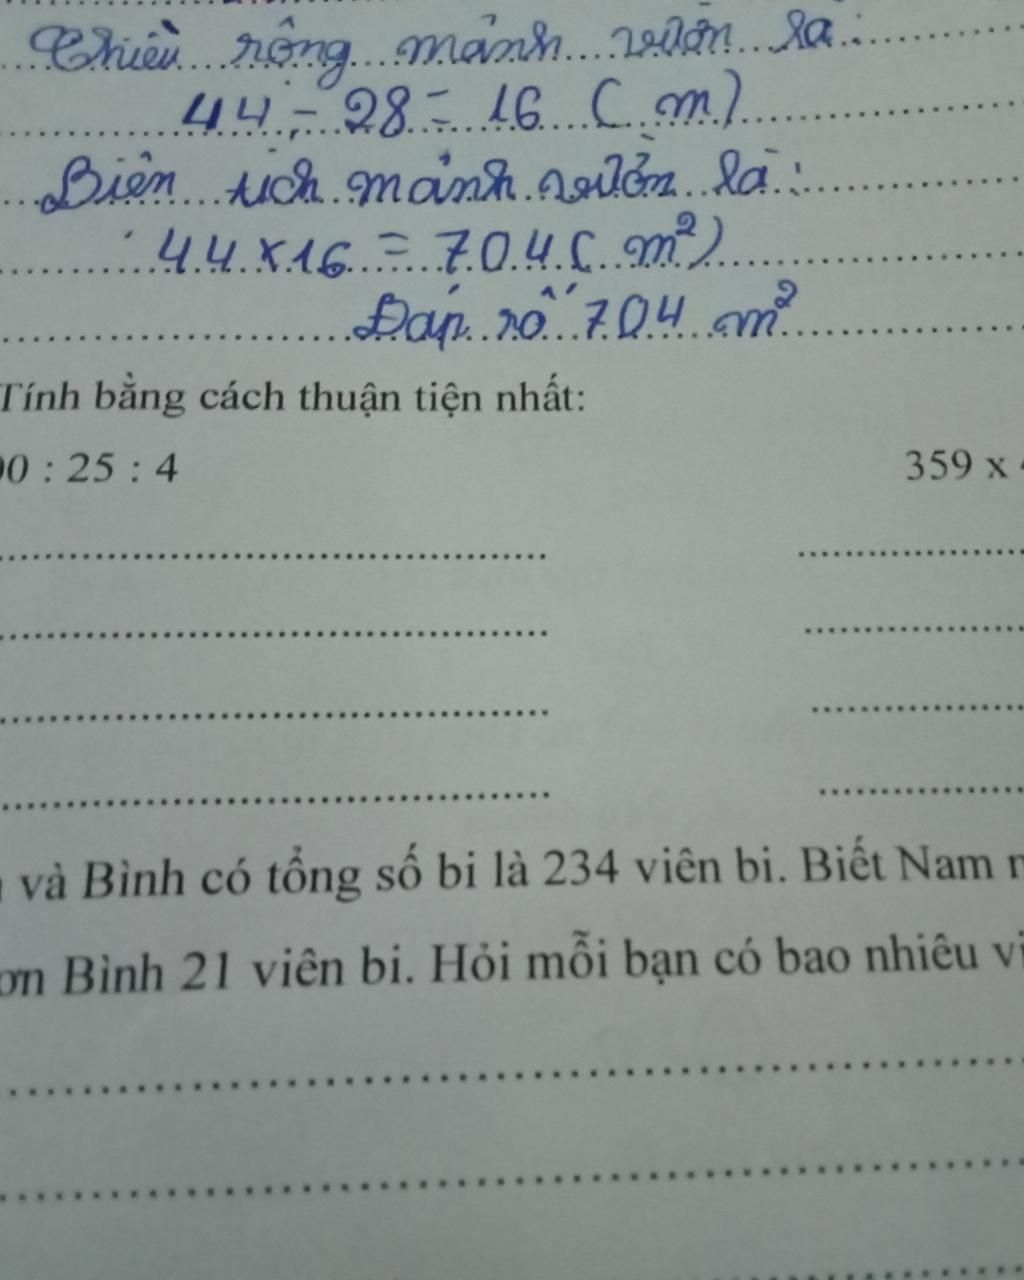 Chiều rộng mảnh vườn là:
44 - 28 = 16 (m)
Diện tích mảnh vườn là:
44 x 16 = 704 (m²)
Đáp số 704 m²
Tính bằng cách thuận tiện nhất:
00 : 25 : 4 359 x
và Bình có tổng số bi là 234 viên bi. Biết Nam
ơn Bình 21 viên bi. Hỏi mỗi bạn có bao nhiêu vi